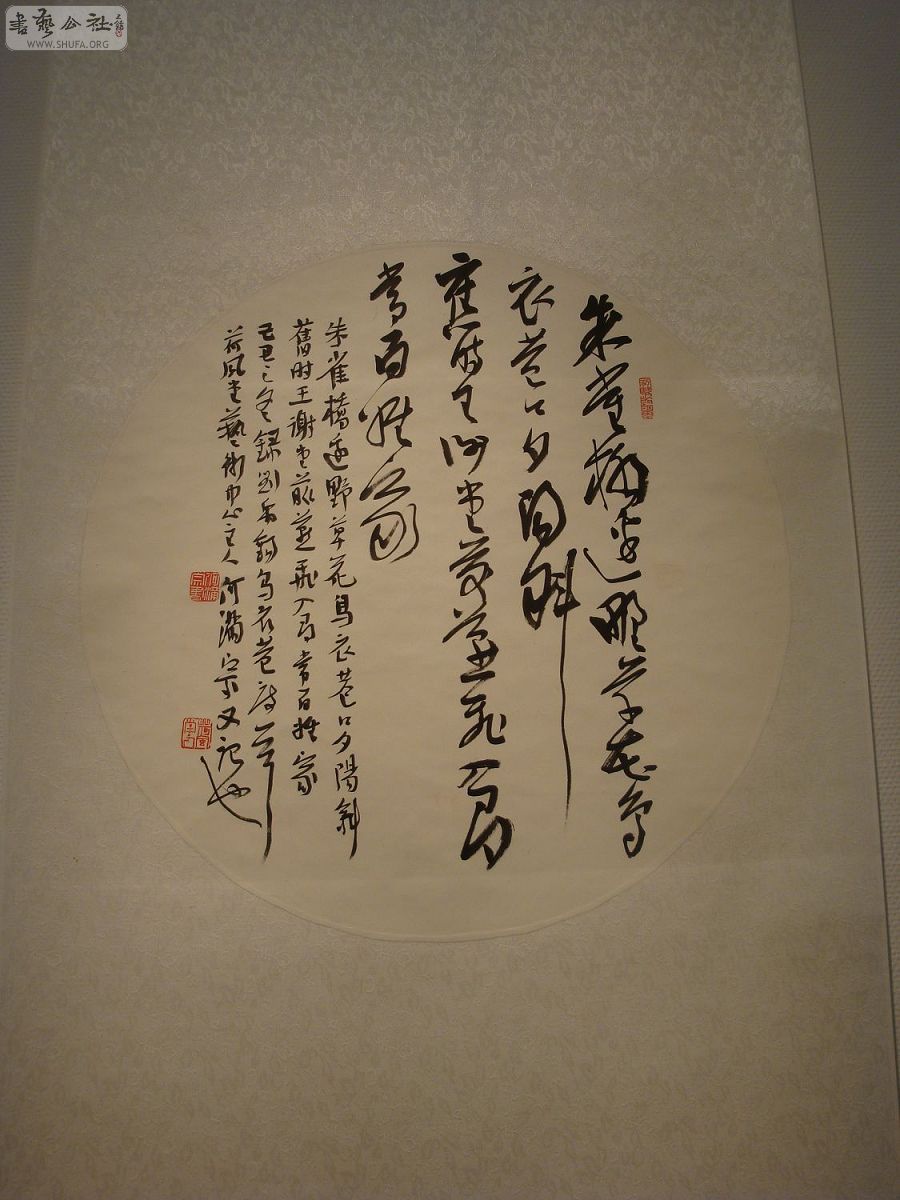 書藝公社
WWW.SHUFA.ORG
朱雀橋邊野草花烏
衣巷口夕陽斜
舊時王謝堂前燕飛入尋
常百姓家
朱雀橋邊野草花烏衣巷口夕陽斜
舊時王謝堂前燕飛入尋常百姓家
己丑之冬錄劉禹錫烏衣巷詩一首
荷風堂藝術中心主人何滿宗又記也